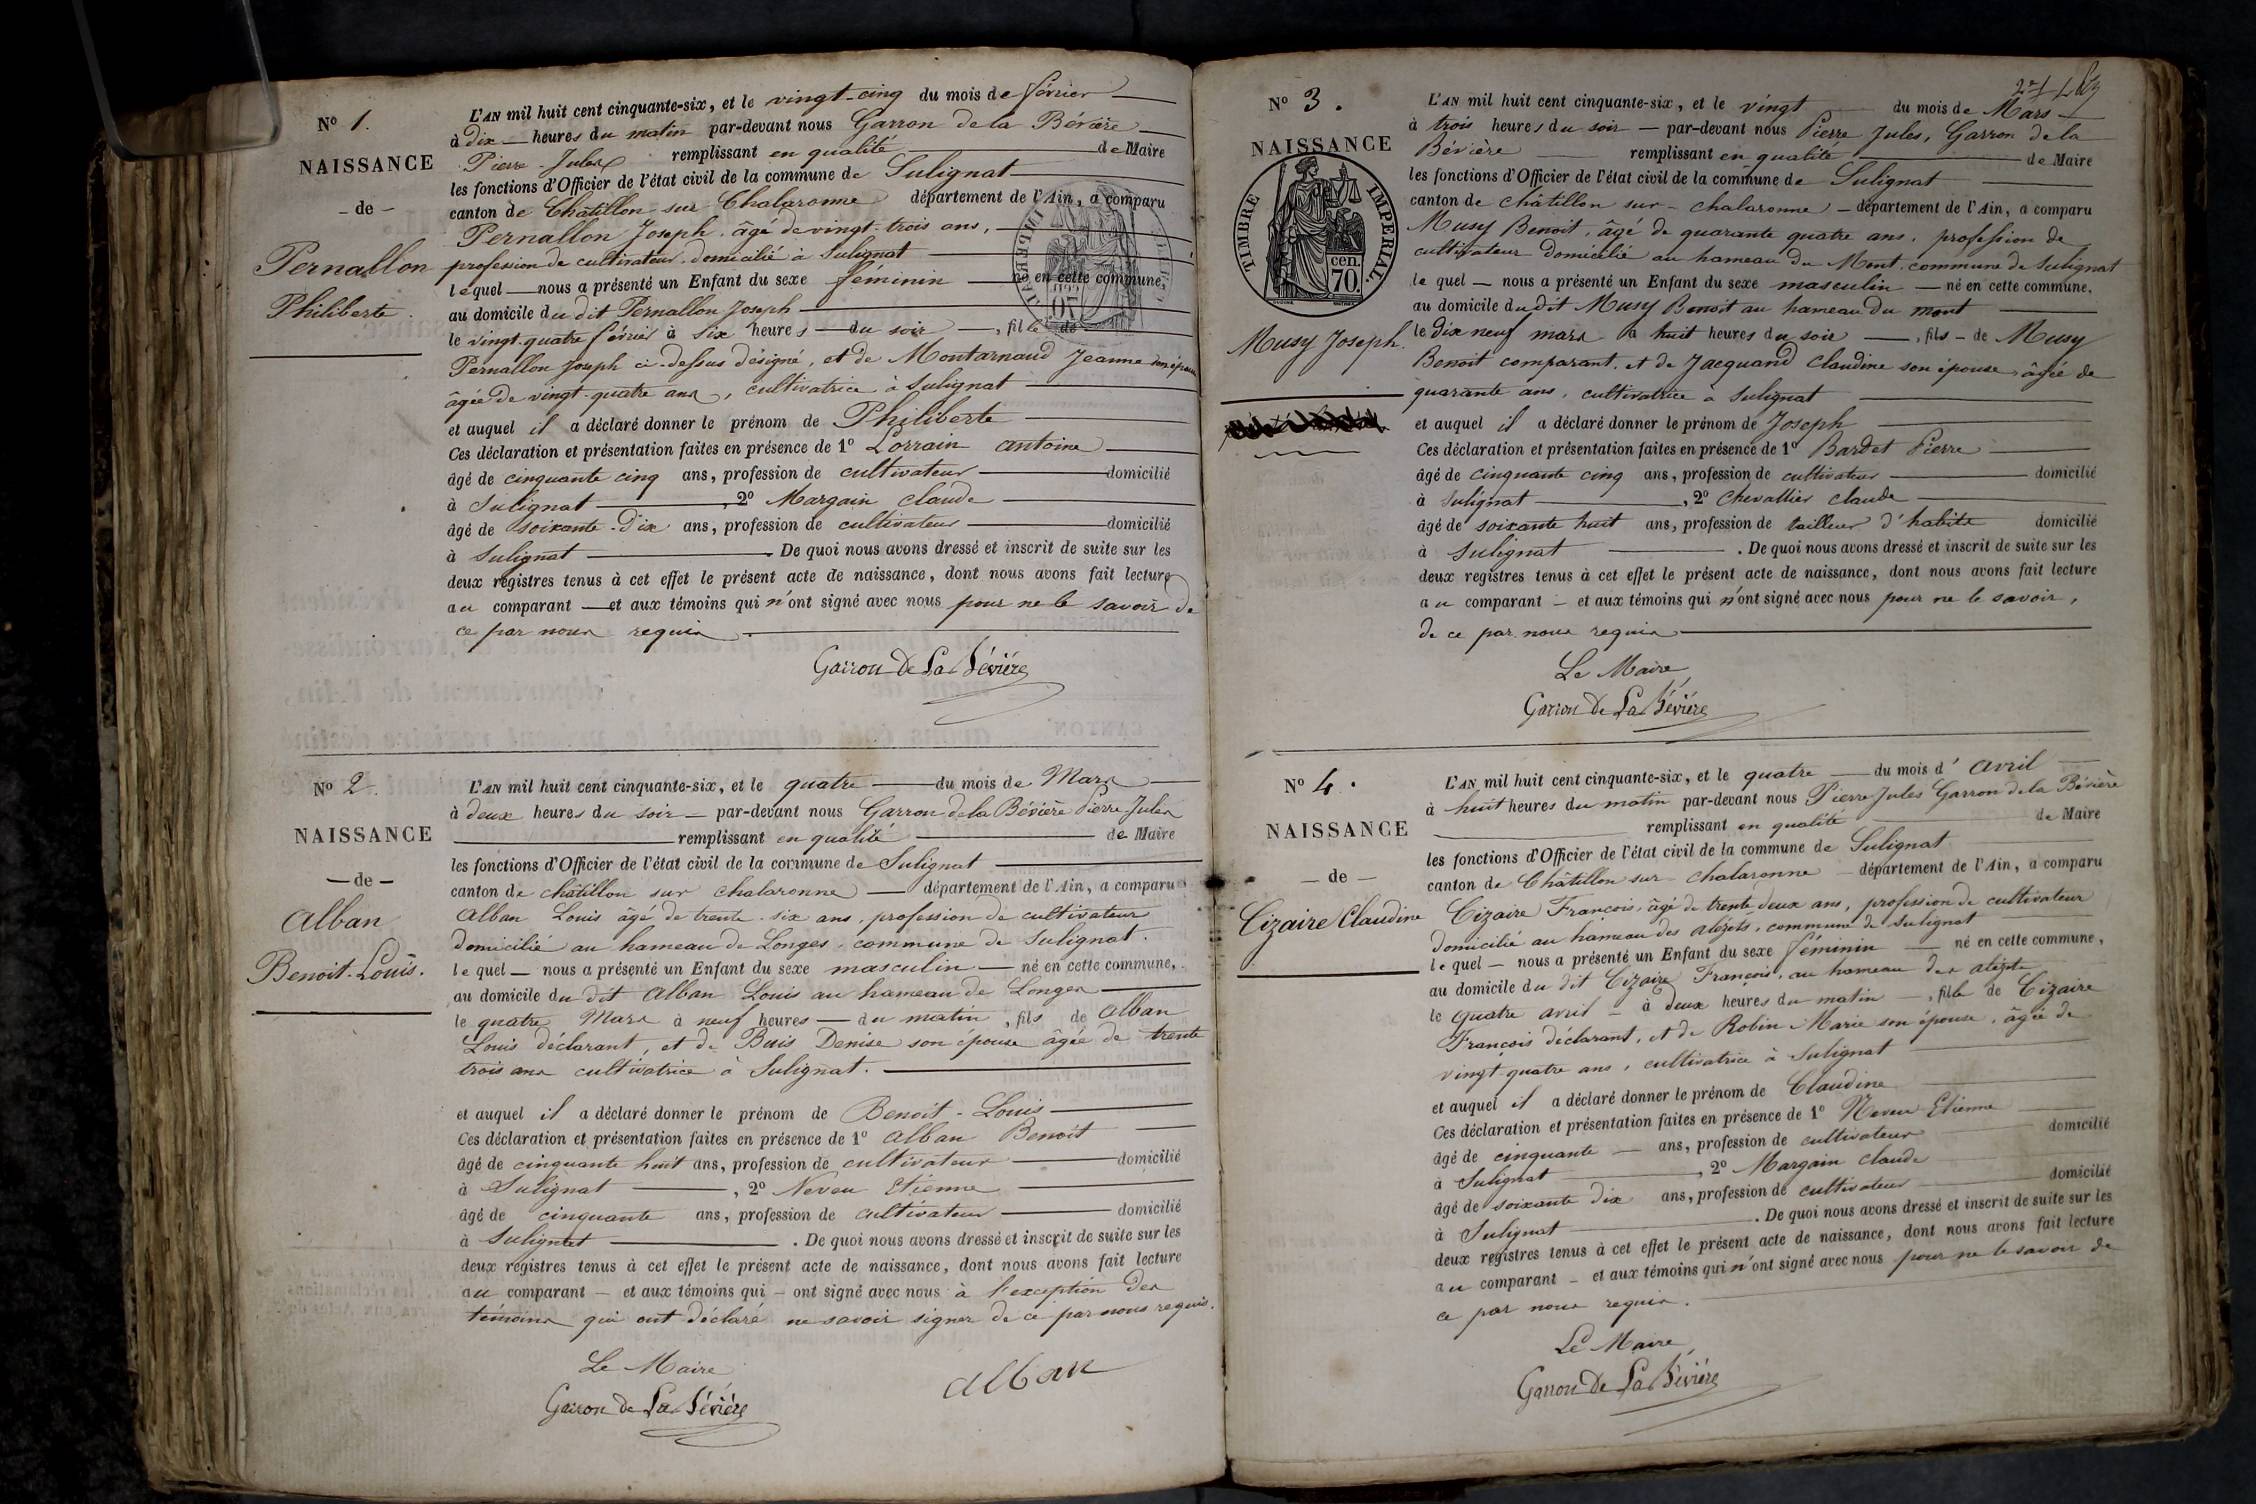 N° 1.
NAISSANCE
- de -
Pernallon
Philiberte
L'AN mil huit cent cinquante-six, et le vingt-cinq du mois de février
à dix heures du matin par-devant nous Garron de la Bévière
Pierre Jules remplissant en qualité de Maire
les fonctions d'Officier de l'état civil de la commune de Sulignat
canton de Châtillon sur Chalaronne département de l'Ain, a comparu
Pernallon Joseph, âgé de vingt-trois ans,
profession de cultivateur domicilié à Sulignat
lequel nous a présenté un Enfant du sexe féminin né en cette commune,
au domicile du dit Pernallon Joseph
le vingt-quatre février à six heures du soir, fille de
Pernallon Joseph ci-dessus désigné, et de Montarnaud Jeanne son épouse
âgée de vingt-quatre ans, cultivatrice à Sulignat
et auquel il a déclaré donner le prénom de Philiberte
Ces déclaration et présentation faites en présence de 1° Lorrain antoine
âgé de cinquante cinq ans, profession de cultivateur domicilié
à Sulignat, 2° Margain claude
âgé de soixante-dix ans, profession de cultivateur domicilié
à Sulignat. De quoi nous avons dressé et inscrit de suite sur les
deux registres tenus à cet effet le présent acte de naissance, dont nous avons fait lecture
au comparant et aux témoins qui n'ont signé avec nous pour ne le savoir de
ce par nous requis
Garron De La Bévière
N° 2.
NAISSANCE
- de -
Alban
Benoit-Louis.
L'AN mil huit cent cinquante-six, et le quatre du mois de Mars
à deux heures du soir par-devant nous Garron de la Bévière Pierre Jules
remplissant en qualité de Maire
les fonctions d'Officier de l'état civil de la commune de Sulignat
canton de châtillon sur chalaronne département de l'Ain, a comparu
Alban Louis âgé de trente-six ans, profession de cultivateur
domicilié au hameau de Longes, commune de Sulignat.
lequel nous a présenté un Enfant du sexe masculin né en cette commune,
au domicile du dit Alban Louis au hameau de Longes
le quatre Mars à neuf heures du matin, fils de Alban
Louis déclarant, et de Buis Denise son épouse âgée de trente
trois ans cultivatrice à Sulignat.
et auquel il a déclaré donner le prénom de Benoit-Louis
Ces déclaration et présentation faites en présence de 1° Alban Benoit
âgé de cinquante huit ans, profession de cultivateur domicilié
à Sulignat, 2° Neveu Etienne
âgé de cinquante ans, profession de cultivateur domicilié
à Sulignat. De quoi nous avons dressé et inscrit de suite sur les
deux registres tenus à cet effet le présent acte de naissance, dont nous avons fait lecture
au comparant - et aux témoins qui - ont signé avec nous à l'exception des
témoins qui ont déclaré ne savoir signer de ce par nous requis.
Le Maire
Garron de La Bévière
alban
N° 3.
NAISSANCE
TIMBRE IMPERIAL.
cen. 70.
Musy Joseph.
L'AN mil huit cent cinquante-six, et le vingt du mois de Mars
à trois heures du soir par-devant nous Pierre Jules, Garron de la
Bévière remplissant en qualité de Maire
les fonctions d'Officier de l'état civil de la commune de Sulignat
canton de châtillon sur-chalaronne département de l'Ain, a comparu
Musy Benoit, âgé de quarante quatre ans, profession de
cultivateur domicilié au hameau du Mont, commune de Sulignat
lequel nous a présenté un Enfant du sexe masculin né en cette commune,
au domicile du dit Musy Benoit au hameau du mont
le dix neuf mars à huit heures du soir, fils de Musy
Benoit comparant, et de Jacquand Claudine son épouse, âgée de
quarante ans, cultivatrice à Sulignat
et auquel il a déclaré donner le prénom de Joseph
Ces déclaration et présentation faites en présence de 1° Bardet Pierre
âgé de cinquante cinq ans, profession de cultivateur domicilié
à Sulignat, 2° Chevallier claude
âgé de soixante huit ans, profession de tailleur d'habits domicilié
à Sulignat. De quoi nous avons dressé et inscrit de suite sur les
deux registres tenus à cet effet le présent acte de naissance, dont nous avons fait lecture
au comparant - et aux témoins qui n'ont signé avec nous pour ne le savoir,
de ce par nous requis
Le Maire
Garron De La Bévière
N° 4.
NAISSANCE
- de -
Cizaire Claudine
L'AN mil huit cent cinquante-six, et le quatre du mois d'avril
à huit heures du matin par-devant nous Pierre Jules Garron de la Bévière
remplissant en qualité de Maire
les fonctions d'Officier de l'état civil de la commune de Sulignat
canton de Châtillon sur chalaronne département de l'Ain, a comparu
Cizaire François, âgé de trente deux ans, profession de cultivateur
domicilié au hameau des alézets, commune de Sulignat
lequel - nous a présenté un Enfant du sexe féminin né en cette commune,
au domicile du dit Cizaire François, au hameau des
le quatre avril à deux heures du matin, fille de Cizaire
François déclarant, et de Robin Marie son épouse, âgée de
vingt-quatre ans, cultivatrice à Sulignat
et auquel il a déclaré donner le prénom de Claudine
Ces déclaration et présentation faites en présence de 1° Neveu Etienne
âgé de cinquante ans, profession de cultivateur domicilié
à Sulignat, 2° Margain claude
âgé de soixante dix ans, profession de cultivateur domicilié
à Sulignat. De quoi nous avons dressé et inscrit de suite sur les
deux registres tenus à cet effet le présent acte de naissance, dont nous avons fait lecture
au comparant - et aux témoins qui n'ont signé avec nous pour ne le savoir de
ce par nous requis.
Le Maire
Garron De La Bévière